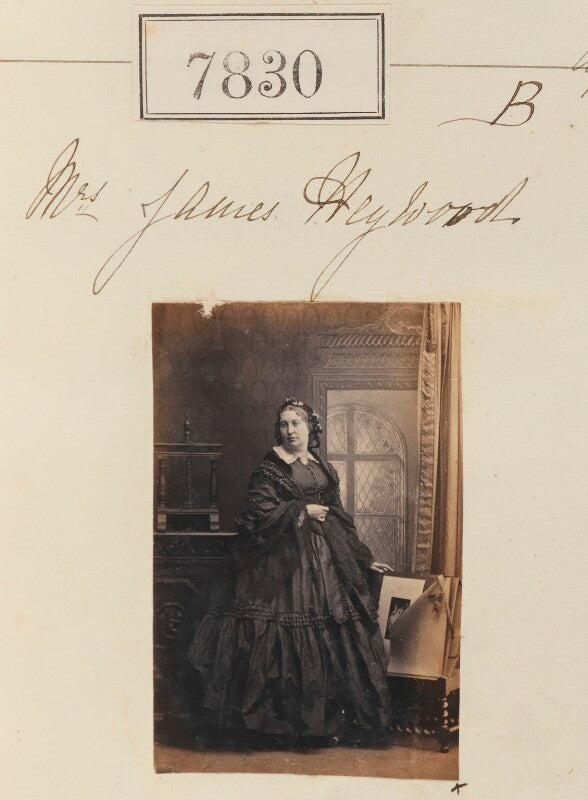 7830
B
Mrs James Heywood
x